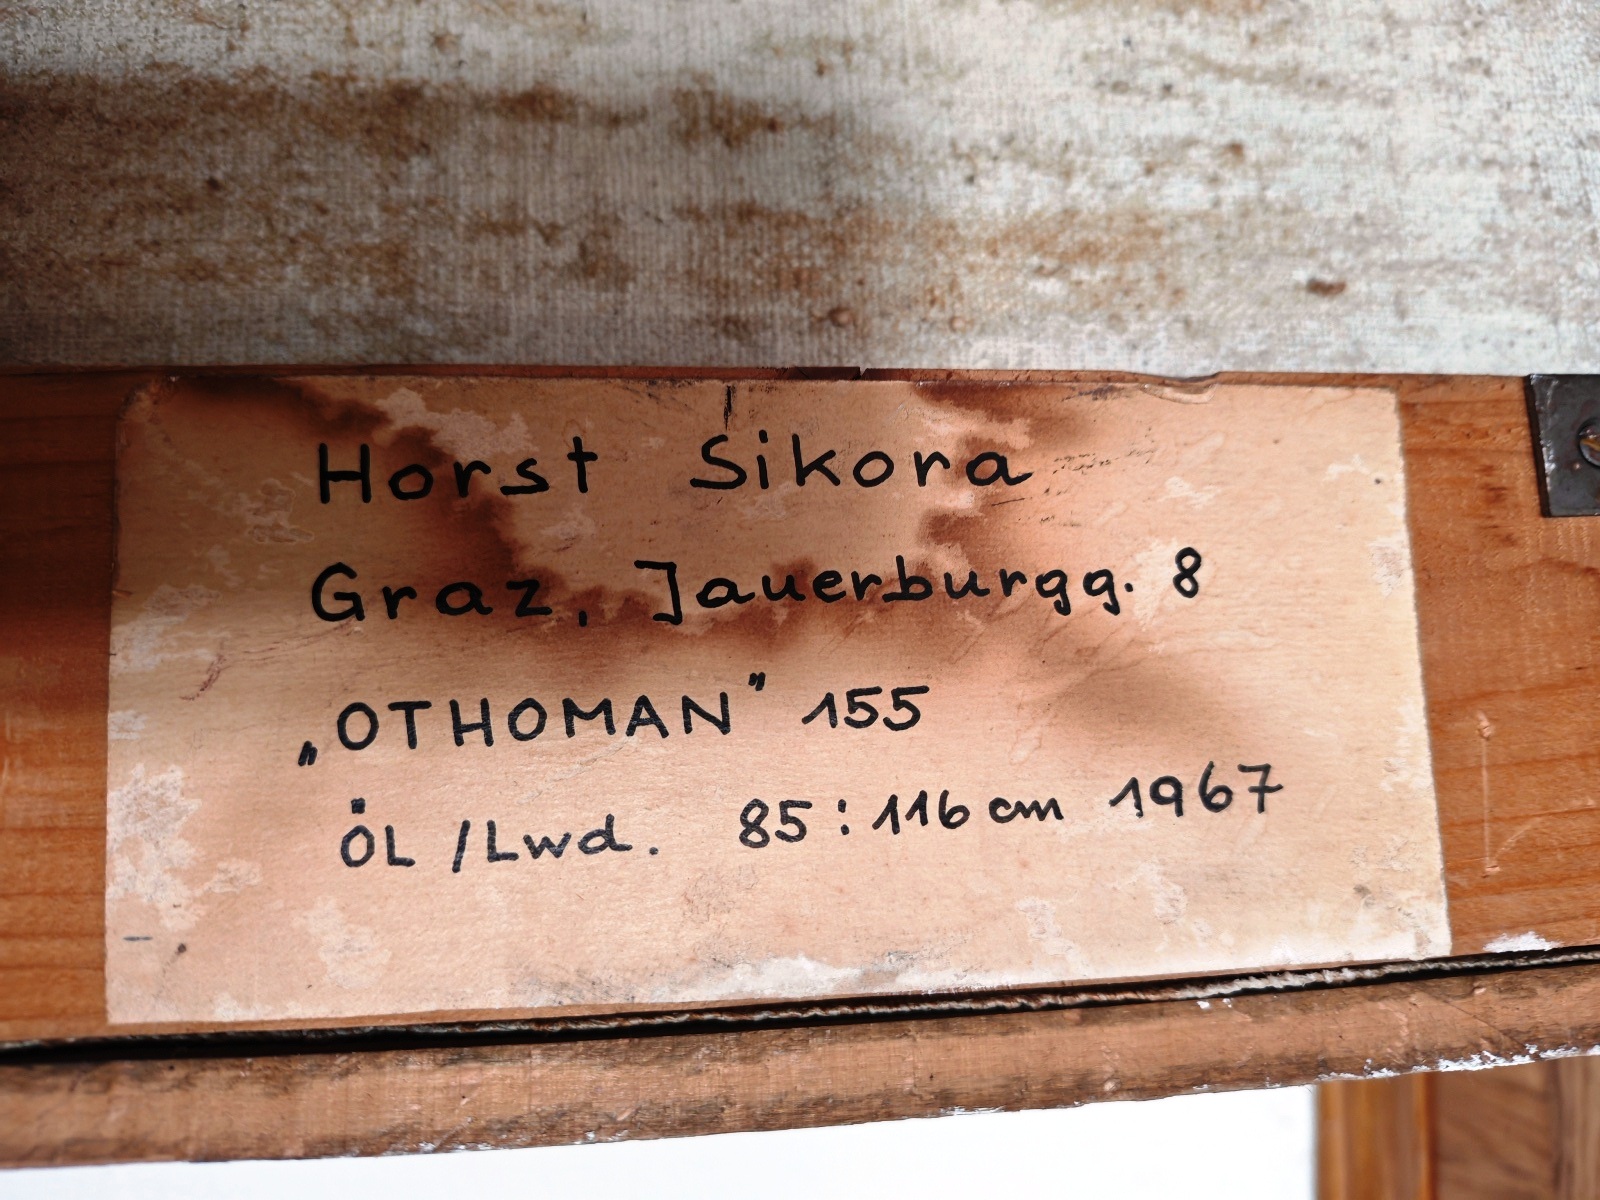 Horst Sikora
Graz, Jauerburgg. 8
„OTHOMAN” 155
ÖL /Lwd. 85:116 cm 1967